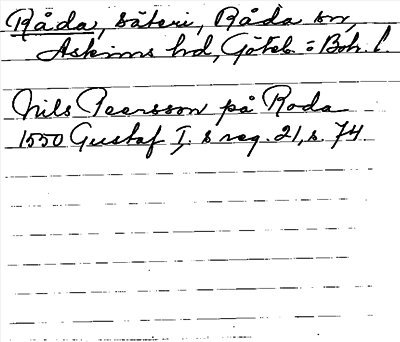 Råda, säteri, Råda sn,
Askims hd, Göteb = Boh. l.
Nils Peersson på Roda
1550 Gustaf I. s reg. 21, s. 74.